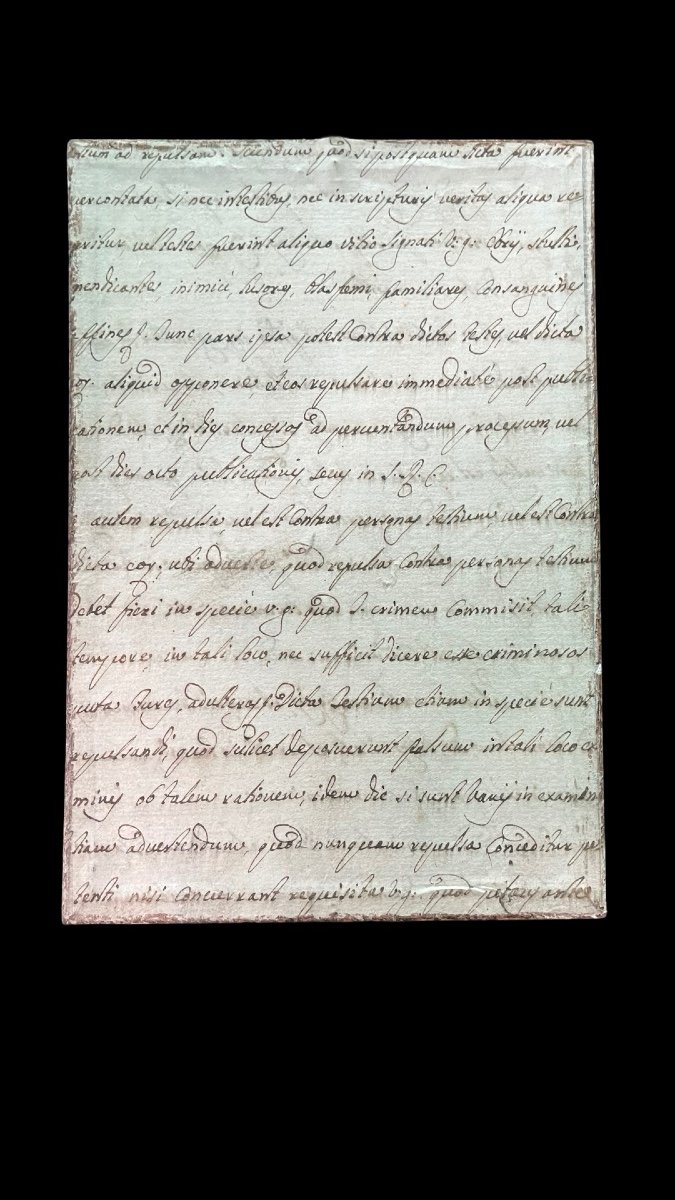 ad repulsam. Sciendum quod si postquam dicta fuerint
percontata, si nec in testibus, nec in scripturis veritas aliqua re
peritur vel testes fuerint aliquo vitio signati v: g: Ebrij, stulti,
mendicantes, inimici, lusores, blasfemi, familiares, Consanguinei
affines &. Tunc pars ipsa potest Contra dictos testes, vel dicta
eor. aliquid opponere, et eos repulsare immediaté post publi
cationem, et in dies concessos ad percontandum processum, vel
post dies octo publicationis, secus in S. R. C.
autem repulsa, vel est Contra personas testium, vel est Contra
dicta eor., ubi adverte, quod repulsa Contra personas testium
debet fieri in specié v. g: quod S. crimen Commisit tali
tempore, in tali loco, nec sufficit dicere esse criminosos
puta fures, adulteros &. Dicta Testium etiam in specié sunt
repulsandi, quod scilicet deposuerunt falsum in tali loco
ob talem rationem, idem dic si sunt Varij in examin
etiam advertendum, quod nunquam repulsa Conceditur pe
tenti nisi Concurrant requisita v. g: quod petens ante